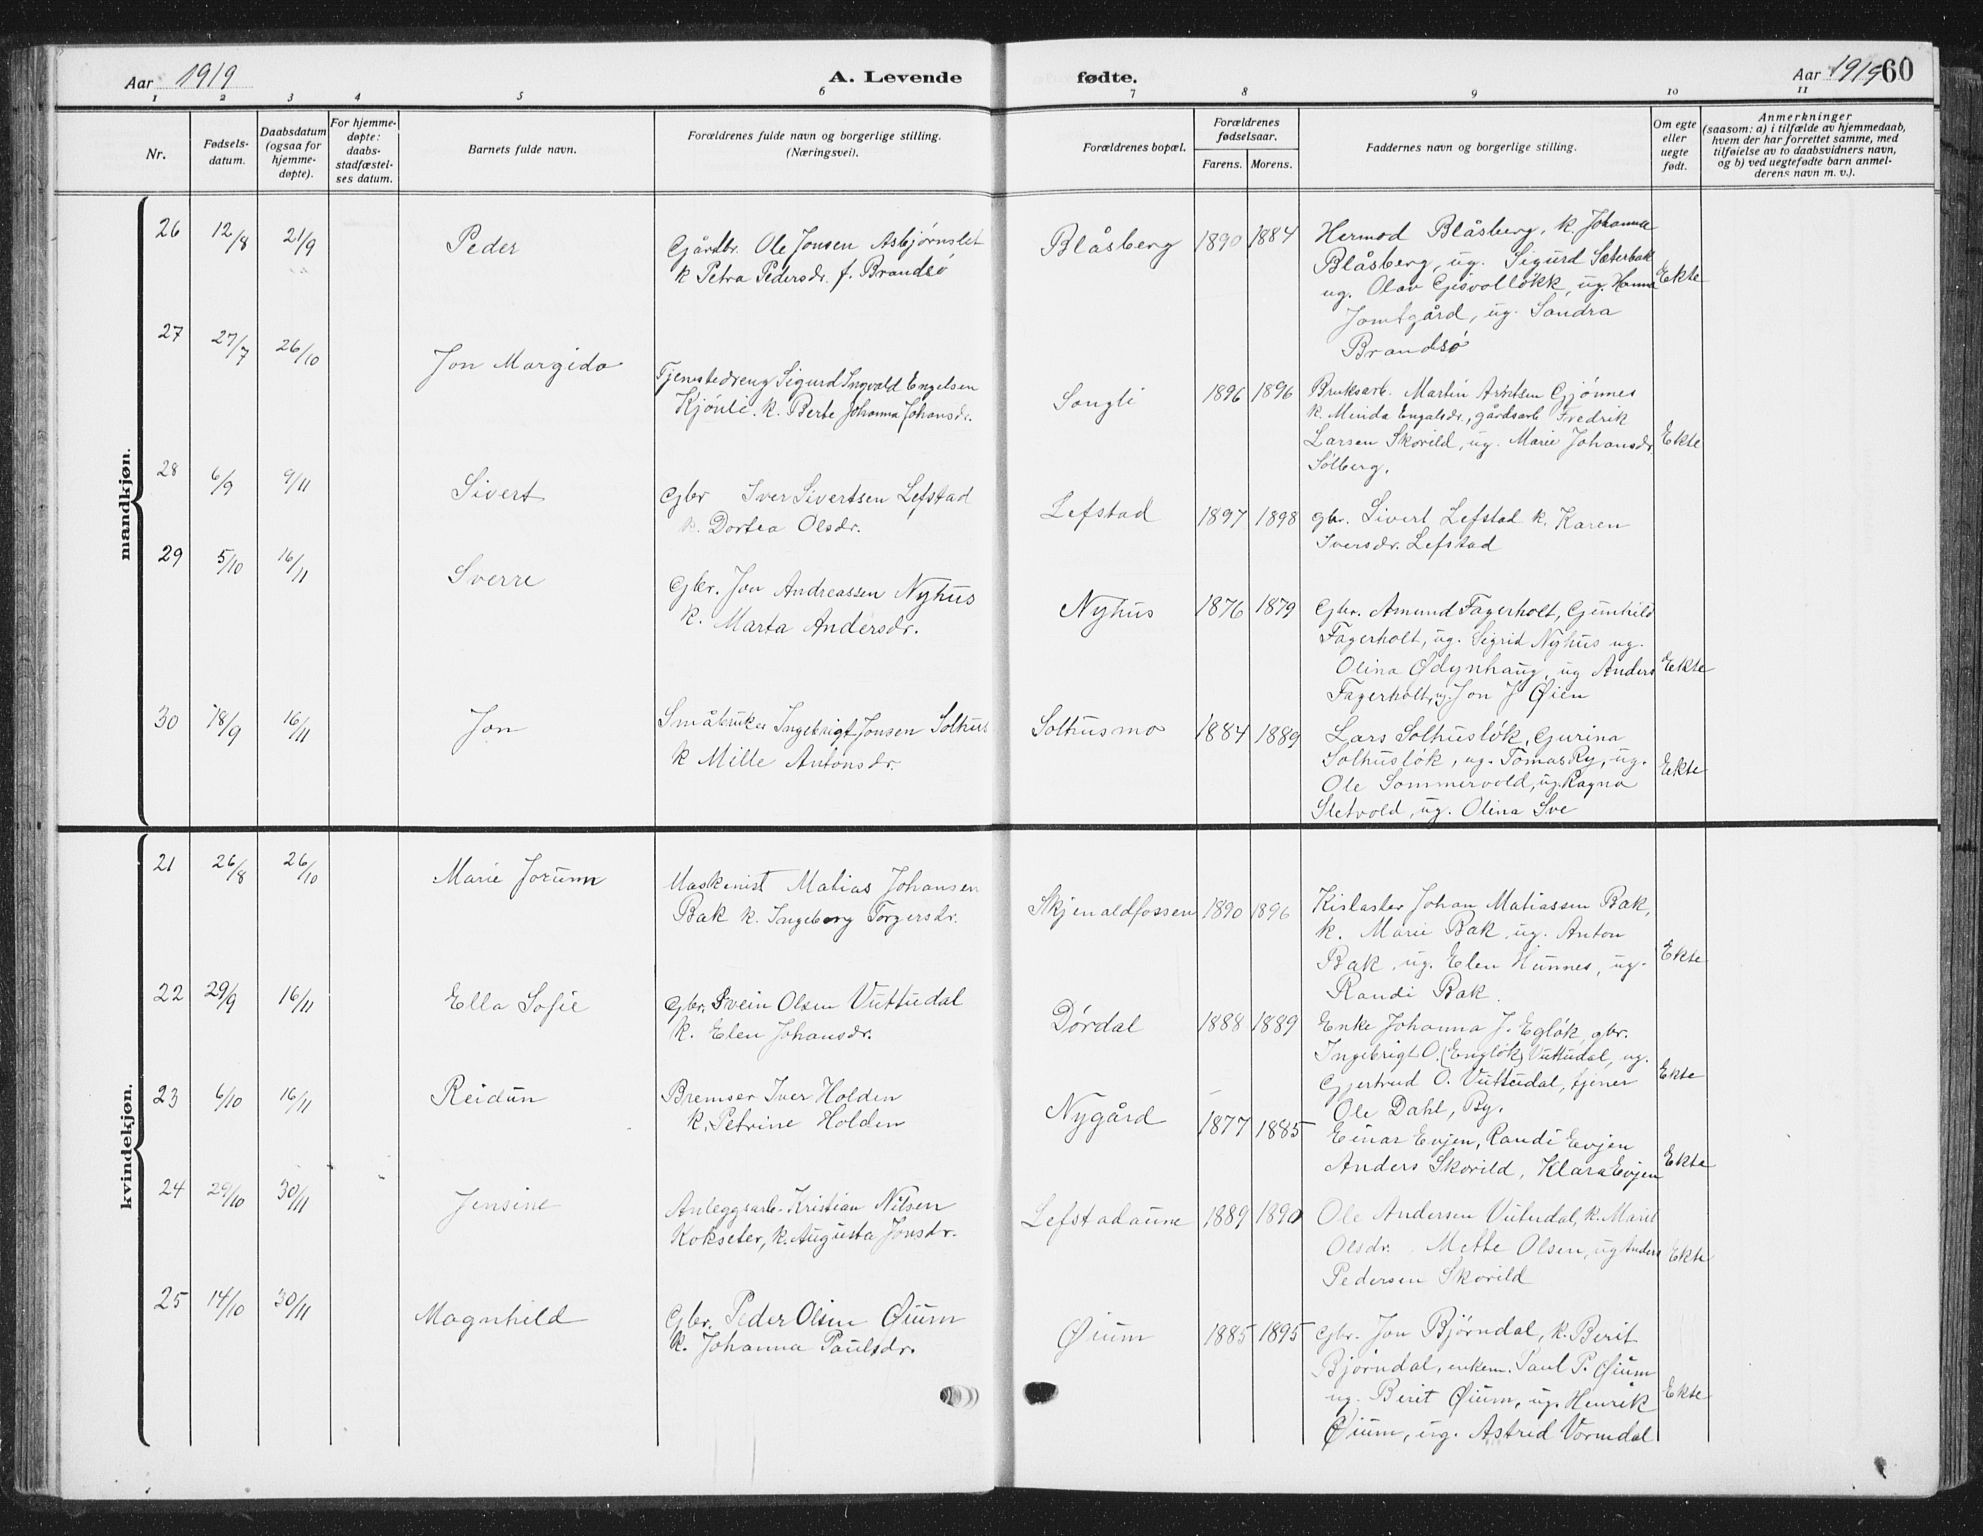 Aar 1919
A. Levende fødte.
Aar 1919 60
1 2 3 4 5 6 7 8 9 10 11
Nr.
Fødsels-
datum.
Daabsdatum
(ogsaa for
hjemme-
døpte).
For hjemme-
døpte:
daabs-
stadfæstel-
ses datum.
Barnets fulde navn.
Forældrenes fulde navn og borgerlige stilling.
(Næringsvei).
Forældrenes bopæl.
Forældrenes
fødselsaar.
Farens. Morens.
Faddernes navn og borgerlige stilling.
Om egte
eller
uegte
født.
Anmerkninger
(saasom: a) i tilfælde av hjemmedaab,
hvem der har forrettet samme, med
tilføielse av to daabsvidners navn,
og b) ved uegtefødte barn anmel-
derens navn m. v.).
mandkjøn.
26 12/8 21/9 Peder
Gårdbr. Ole Jonsen Asbjørnslet
k Petra Pedersdr. f. Brandsø
Blåsberg 1890 1884
Hermod Blåsberg, k. Johanna
Blåsberg, ug. Sigurd Sæterbak
ug. Olav Gisvolløkk, ug. Hanna
Jomtgård, ug. Sandra
Brandsø
Ekte
27 27/7 26/10 Jon Margido
Tjenestedreng Sigurd Ingvald Engelsen
Kjønli. k. Berte Johanna Johansdr.
Songli 1896 1896
Bruksarb. Martin Arntsen Gjønnes
k. Minda Engalsdr, gårdsarb Fredrik
Larsen Skorild, ug. Marie Johansdr
Sølberg.
Ekte
28 6/9 9/11 Sivert
Gbr Iver Sivertsen Lefstad
k. Dortea Olsdr.
Lefstad 1897 1898
gbr. Sivert Lefstad k. Karen
Iversdr. Lefstad
29 5/10 16/11 Sverre
Gbr. Jon Andreassen Nyhus
k. Marta Andersdr.
Nyhus 1876 1879
Gbr. Amund Fagerholt, Gunhild
Fagerholt, ug. Sigrid Nyhus ug.
Olina Ødynhaug, ug Anders
Fagerholt, ug. Jon J Øien
Ekte
30 18/9 16/11 Jon
Småbruker Ingebrigt Jonsen Solhus
k Mille Antonsdr.
Solhusmo 1884 1889
Lars Solhusløk, Gurina
Solhusløk, ug. Tomas Ry, ug.
Ole Sommervold, ug. Ragna
Sletvold, ug. Olina Sve
Ekte
kvindekjøn.
21 26/8 26/10 Marie Jorunn
Maskinist Matias Johansen
Bak k. Ingeborg Torgersdr.
Skjenaldfossen 1890 1896
Johan Matiassen Bak,
k. Marie Bak, ug. Anton
Bak, ug. Elen Hunnes, ug.
Randi Bak.
Ekte
22 29/9 16/11 Ella Sofie
Gbr. Svein Olsen Vuttudal
k. Elen Johansdr.
Dørdal 1888 1889
Enke Johanna J. Egløk, gbr.
Ingebrigt O. (Engløk) Vuttudal, ug.
Gjertrud O. Vuttudal, tjener
Ole Dahl, By.
Ekte
23 6/10 16/11 Reidun
Bremser Iver Holden
k. Petrine Holden
Nygård 1877 1885
Einar Evjen, Randi Evjen
Anders Skorild, Klara Evjen
Ekte
24 29/10 30/11 Jensine
Anleggsarb. Kristian Nilsen
Kokseter, k. Augusta Jonsdr.
Lefstadaune 1889 1890
Ole Andersen Vutudal, k. Marit
Olsdr. Mette Olsen, ug Anders
Pedersen Skorild
Ekte
25 14/10 30/11 Magnhild
Gbr. Peder Olsen Øium
k. Johanna Paulsdr.
Øium 1885 1895
Gbr. Jon Bjørndal, k. Berit
Bjørndal, enkem. Paul P. Øium
ug. Berit Øium, ug. Henrik
Øium, ug. Astrid Vormdal
Ekte